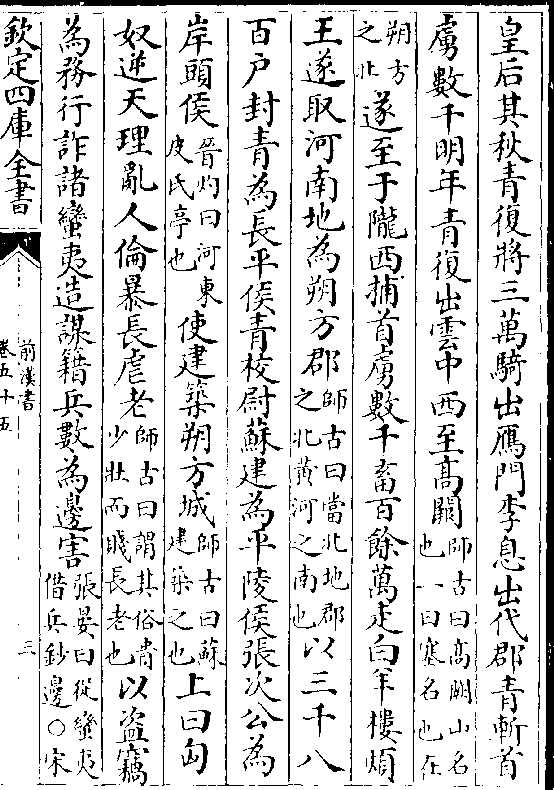 皇后其秋青復將三萬騎出鴈門李息出代郡青斬首
虜數千明年青復出雲中西至髙闕師古曰髙闕山名也一曰塞名也在
朔方之北遂至于隴西捕首虜數千畜百餘萬走白羊樓煩
王遂取河南地為朔方郡師古曰當北地郡之北黄河之南也以三千八
百户封青為長平侯青校尉蘇建為平陵侯張次公為
岸頭侯晉灼曰河東皮氏亭也使建築朔方城師古曰蘇建築之也上曰匈
奴逆天理亂人倫暴長虐老師古曰謂其俗貴少壯而賤長老也以盜竊
為務行詐諸蠻夷造謀籍兵數為邊害張晏曰從蠻夷借兵鈔邊○宋
欽定四庫全書
前漢書
卷五十五
三